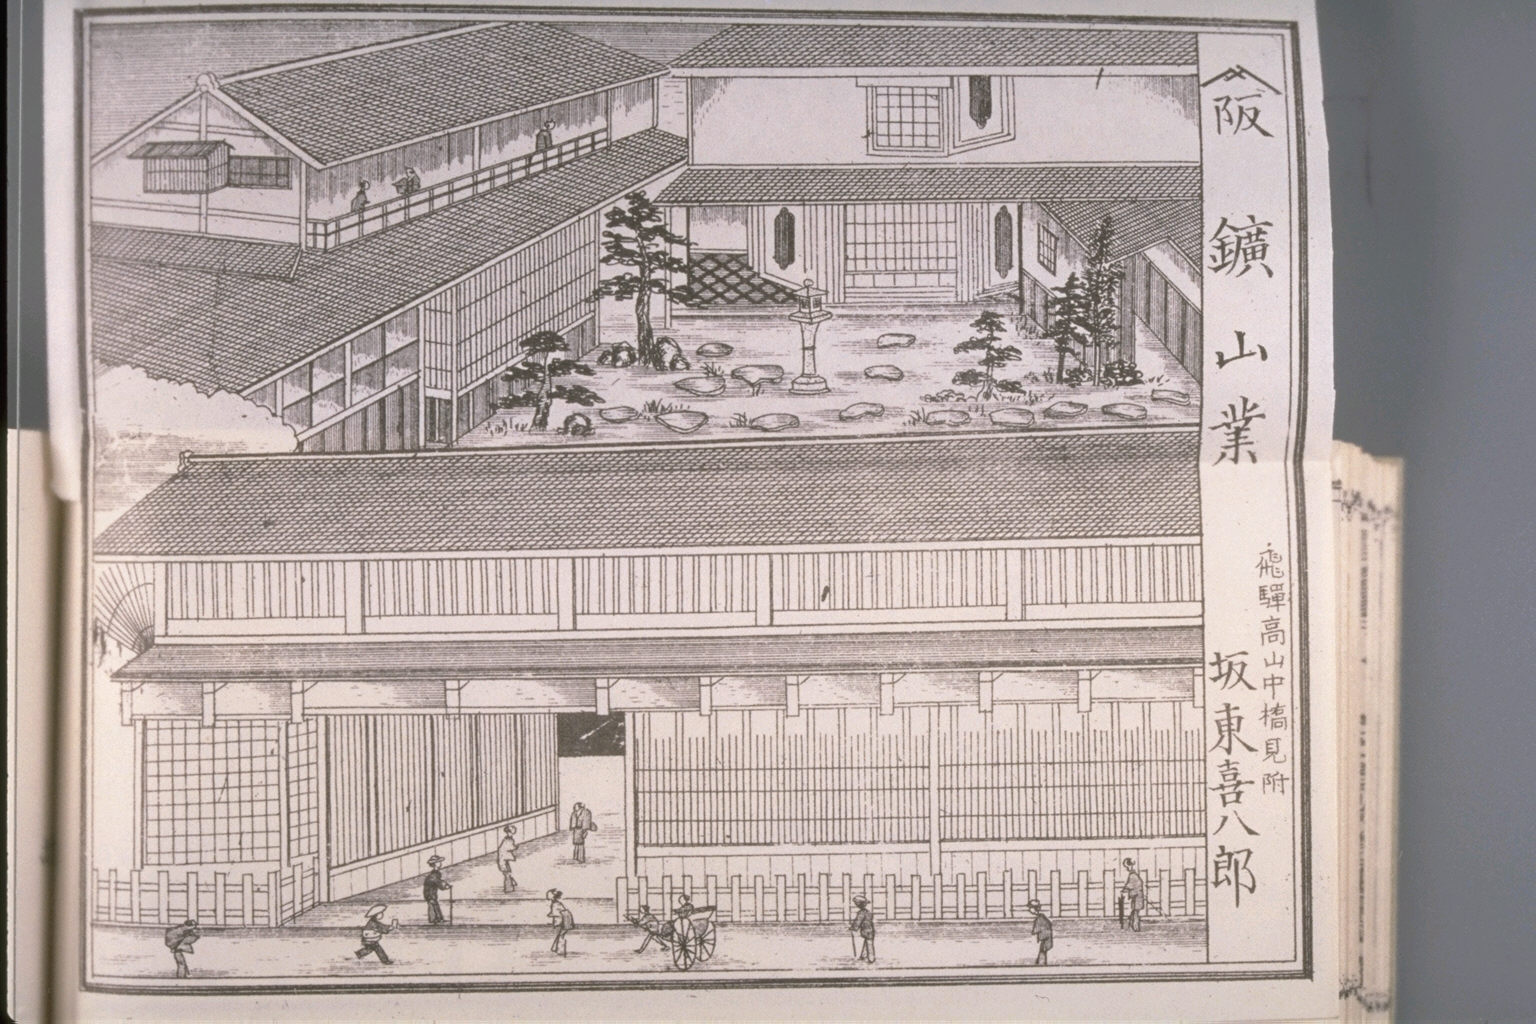 阪 鑛山業
飛驒高山中橋見附
坂東喜八郎